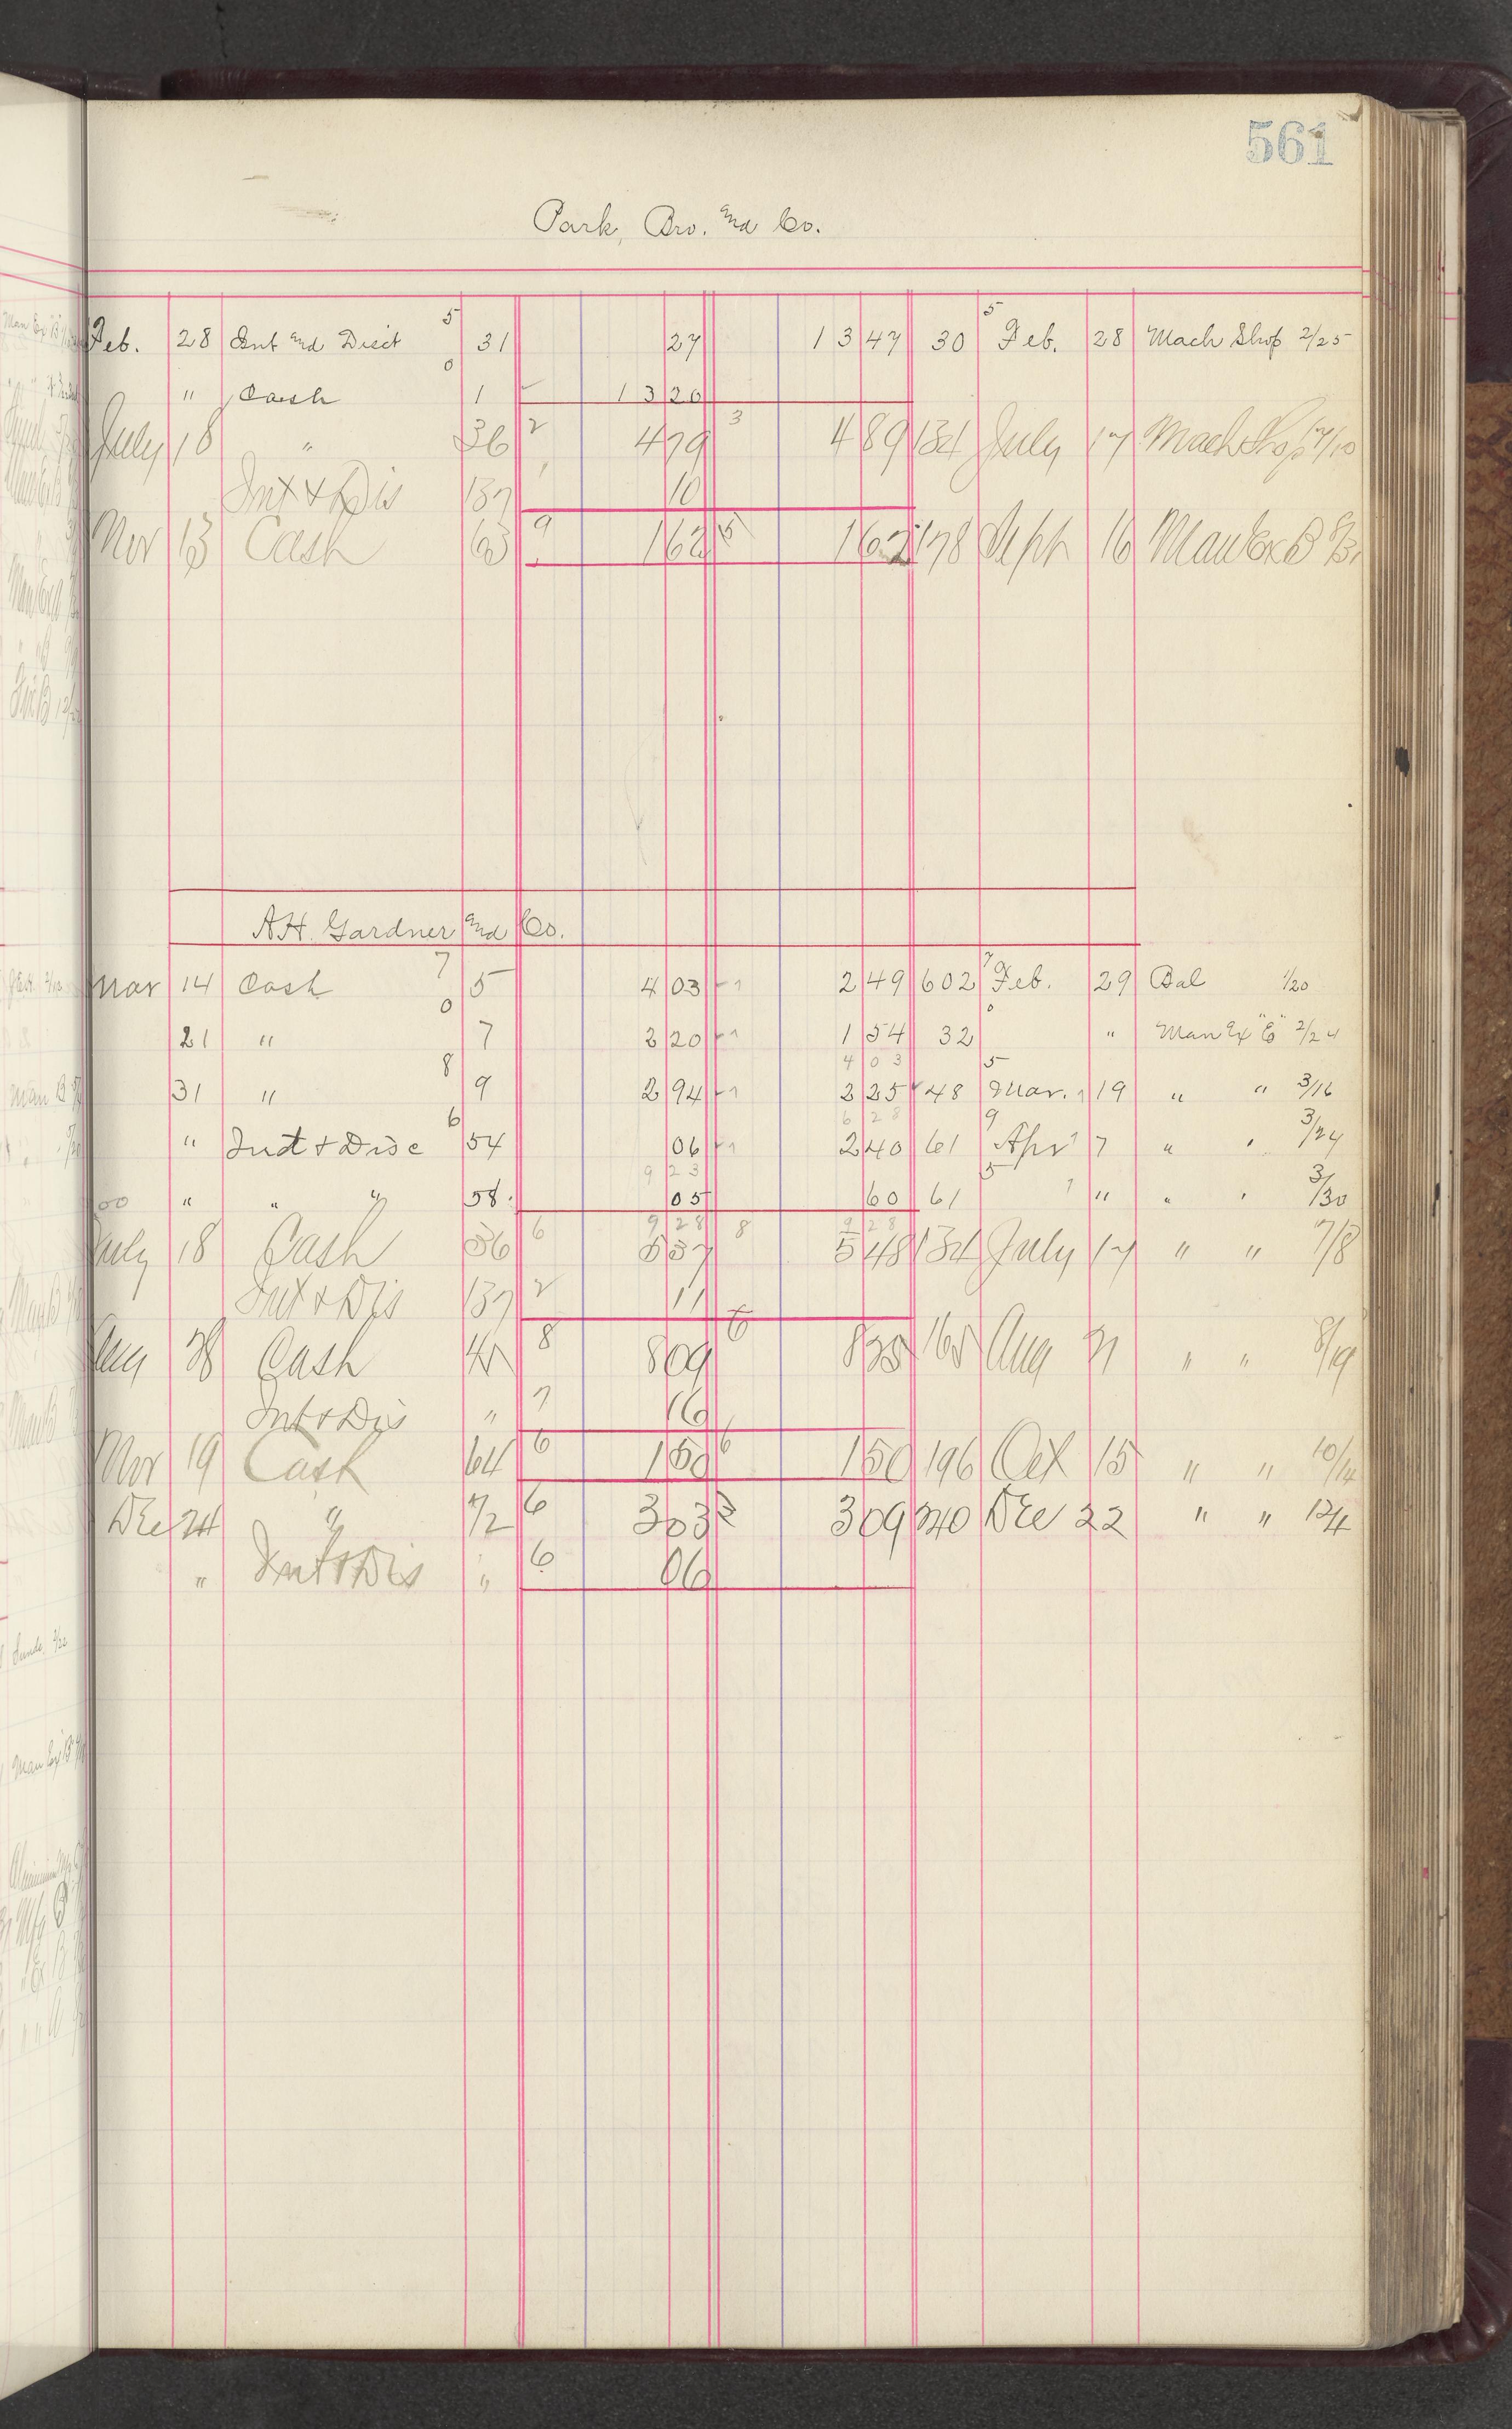 561
Park, Bro. and Co.
Feb. 28 Int and Disct 5 31 27 13 47 30 5 Feb. 28 Mach Shop 2/25
" Cash 0 1 13 20
July 18 " 36 2 4 79 3 4 89 134 July 17 Mach Shop 7/10
Int & Dis 137 10
Nov 13 Cash 63 9 1 62 5 1 62 178 Sept 16 Man Ex B
A.H. Gardner and Co.
Mar 14 Cash 7 5 4 03 2 49 602 7 Feb. 29 Bal 1/20
21 " 0 7 2 20 1 54 32 " Man Ex "E" 2/24
4 03
31 " 8 9 2 94 2 25 48 5 Mar. 19 " " 3/16
6 28
" Inst & Disc 6 54 06 2 40 61 9 Apr 7 " " 3/24
9 23
" " " 58 05 60 61 5 " " " 3/30
9 28 9 28
July 18 Cash 36 6 5 37 8 5 48 134 July 17 " " 7/8
Int & Dis 137 2 11
Aug Cash 8 8 09 6 8 25 165 Aug 21 " " 8/19
Int & Dis " 7 16
Nov 19 Cash 64 6 1 50 6 1 50 196 Oct 15 " " 10/14
Dec 24 " 72 6 3 03 3 09 240 Dec 22 " " 12/4
" Int & Dis " 6 06